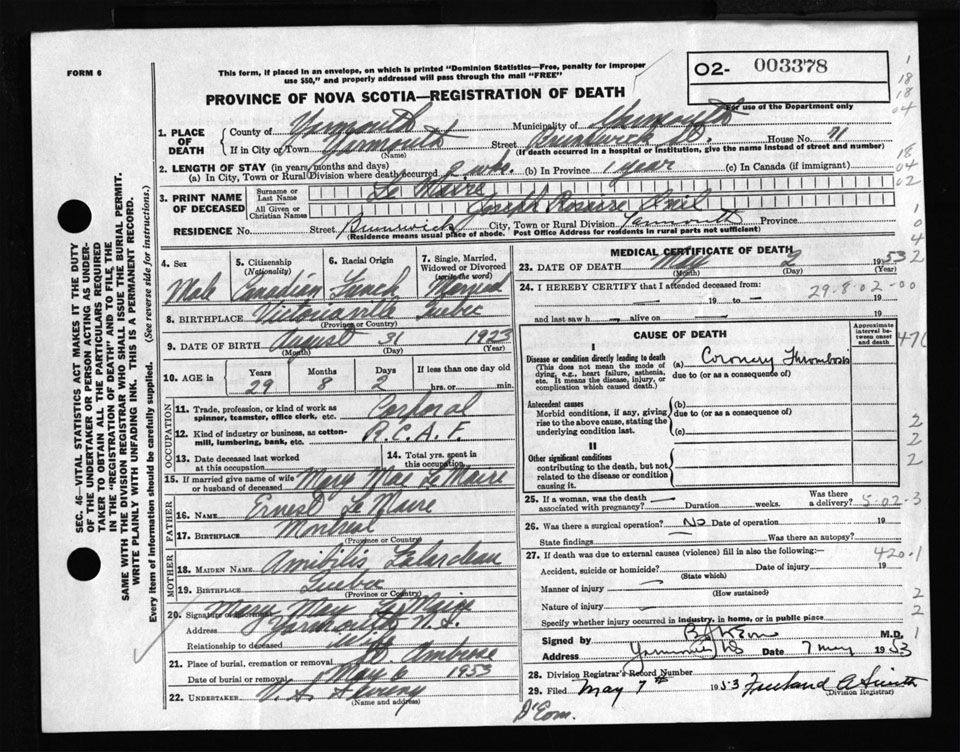 FORM 6
This form, if placed in an envelope, on which is printed "Dominion Statistics—Free, penalty for improper
use $50," and properly addressed will pass through the mail "FREE"
PROVINCE OF NOVA SCOTIA—REGISTRATION OF DEATH
02- 003378
For use of the Department only
1. PLACE OF DEATH
County of Yarmouth Municipality of Yarmouth
If in City or Town Yarmouth (Name) Street Brunswick St. House No. 71
(If death occurred in a hospital or institution, give name instead of street and number)
2. LENGTH OF STAY (in years, months and days)
(a) In City, Town or Rural Division where death occurred 2 wks. (b) In Province 1 year (c) In Canada (if immigrant)
3. PRINT NAME OF DECEASED
Surname or Last Name Le Maire
All Given or Christian Names Joseph
RESIDENCE No. Street Brunswick City, Town or Rural Division Yarmouth Province
(Residence means usual place of abode. Post Office Address for residents in rural parts not sufficient)
4. Sex Male
5. Citizenship (Nationality) Canadian
6. Racial Origin French
7. Single, Married, Widowed or Divorced (write the word) Married
8. BIRTHPLACE Victoriaville Quebec
(Province or Country)
9. DATE OF BIRTH August 31 1923
(Month) (Day) (Year)
10. AGE in Years 29 Months 8 Days 2 If less than one day hrs. or min.
OCCUPATION
11. Trade, profession, or kind of work as spinner, teamster, office clerk, etc. Corporal
12. Kind of industry or business, as cotton-mill, lumbering, bank, etc. R.C.A.F.
13. Date deceased last worked at this occupation
14. Total yrs. spent in this occupation
15. If married give name of wife or husband of deceased Mary May Le Maire
FATHER
16. NAME Ernest Le Maire
17. BIRTHPLACE Montreal
(Province or Country)
MOTHER
18. MAIDEN NAME
19. BIRTHPLACE Quebec
(Province or Country)
20. Signature of informant Mary May Le Maire
Address Yarmouth N.S.
Relationship to deceased wife
21. Place of burial, cremation or removal Ambrose
Date of burial or removal May 6 1953
22. UNDERTAKER V. S. Sweeny
(Name and address)
MEDICAL CERTIFICATE OF DEATH
23. DATE OF DEATH May 2 1953
(Month) (Day) (Year)
24. I HEREBY CERTIFY that I attended deceased from:
19 to 19
and last saw h alive on 19
29-8-02-00
CAUSE OF DEATH
Approximate interval between onset and death
I
Disease or condition directly leading to death
(This does not mean the mode of dying, e.g., heart failure, asthenia, etc. It means the disease, injury, or complication which caused death.)
(a) Coronary Thrombosis
due to (or as a consequence of)
Antecedent causes
Morbid conditions, if any, giving rise to the above cause, stating the underlying condition last.
(b)
due to (or as a consequence of)
(c)
II
Other significant conditions
contributing to the death, but not related to the disease or condition causing it.
25. If a woman, was the death associated with pregnancy? Duration weeks. Was there a delivery?
5-02-3
26. Was there a surgical operation? No Date of operation 19
State findings Was there an autopsy?
27. If death was due to external causes (violence) fill in also the following:
420.1
Accident, suicide or homicide? (State which) Date of injury 19
Manner of injury (How sustained)
Nature of injury
Specify whether injury occurred in industry, in home, or in public place
Signed by M.D.
Address Yarmouth NS Date 7 May 1953
28. Division Registrar's Record Number
29. Filed May 7th 1953 Freeland A Smith
(Division Registrar)
SEC. 46—VITAL STATISTICS ACT MAKES IT THE DUTY
OF THE UNDERTAKER OR PERSON ACTING AS UNDER-
TAKER TO OBTAIN ALL THE PARTICULARS REQUIRED
IN THE "REGISTRATION OF DEATH" AND TO FILE THE
SAME WITH THE DIVISION REGISTRAR WHO SHALL ISSUE THE BURIAL PERMIT.
WRITE PLAINLY WITH UNFADING INK. THIS IS A PERMANENT RECORD.
Every item of information should be carefully supplied. (See reverse side for instructions.)